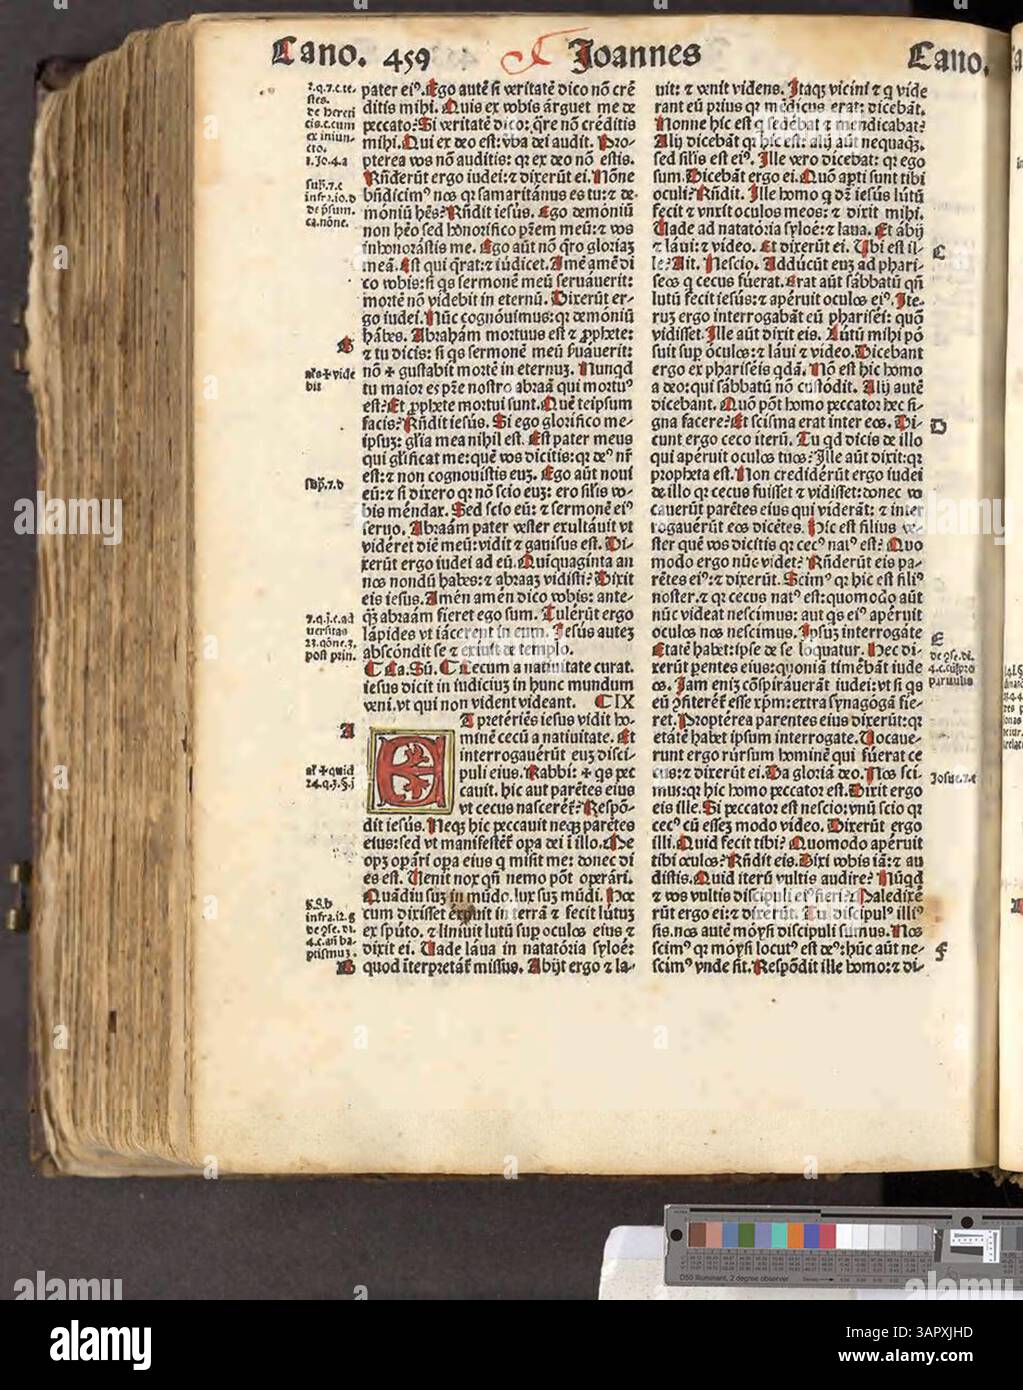 Cano. 459 Joannes Cano.
pater eiꝰ. Ego autē si veritatē dico nō crē
ditis mihi. Quis ex vobis árguet me de
peccato? Si veritatē dico: q̄re nō créditis
mihi. Qui ex deo est: v̄ba dei audit. Pro-
pterea vos nō auditis: qꝛ ex deo nō estis.
Rn̄derūt ergo iudei: ⁊ dixerūt ei. Nōne
bn̄dicimꝰ nos qꝛ samaritánus es tu: ⁊ de-
móniū hēs? Rn̄dit iesús. Ego demóniū
non hēo sed honorífico pr̄em meū: ⁊ vos
inhonorástis me. Ego aūt nō q̄ro gloriaꝫ
meā. Est qui q̄rat: ⁊ iúdicet. Amē amē di
co vobis: si qs sermonē meū seruauerit:
mortē nō videbit in eternū. Dixerūt er-
go iudei. Nūc cognóuimus: qꝛ demóniū
hábes. Abrahám mortuus est ⁊ ꝓphete:
⁊ tu dicis: si qs sermonē meū ẜuauerit:
nō + gustabit mortē in eternuꝫ. Nunqd
tu maior es pr̄e nostro abraā qui mortuꝰ
est? Et ꝓphete mortui sunt. Quē teipsum
facis? Rn̄dit iesús. Si ego glorífico me-
ipsuꝫ: gl̄ia mea nihil est. Est pater meus
qui gl̄ificat me: quē vos dicitis: qꝛ deꝰ nr̄
est: ⁊ non cognouistis euꝫ. Ego aūt noui
eū: ⁊ si dixero qꝛ nō scio euꝫ: ero sil̄is vo-
bis mēndax. Sed scio eū: ⁊ sermonē eiꝰ
seruo. Abraám pater vester exultáuit vt
vidéret diē meū: vidit ⁊ gauisus est. Di-
xerūt ergo iudei ad eū. Quinquaginta an
nos nondū habes: ⁊ abraaꝫ vidisti? Dixit
eis iesus. Amén amén dico vobis: ante-
qꝫ abraám fieret ego sum. Tulérūt ergo
lápides vt iácerent in eum. Jesús auteꝫ
abscóndit se ⁊ exiuit de templo.
¶ Ca. Sū. ¶ Cecum a natiuitate curat.
iesus dicit in iudiciuꝫ in hunc mundum
veni. vt qui non vident videant. ¶ IX
ET pretériēs iesus vidit ho-
minē cecū a natiuitate. Et
interrogauérūt euꝫ disci-
puli eius. Rabbi: + qs pec
cauit. hic aut parétes eius
vt cecus nasceret̄? Respō-
dit iesús. Neqꝫ hic peccauit neqꝫ parétes
eius: sed vt manifestet̄ opa dei ī illo. Me
opꝫ opári opa eius q misit me: donec di
es est. Uenit nox qn̄ nemo pōt operári.
Quádiu suꝫ in mūdo. lux suꝫ mūdi. Hec
cum dixisset éxpuit in terrā ⁊ fecit lútuꝫ
ex spúto. ⁊ liniuit lutū sup oculos eius ⁊
dixit ei. Uade laua in natatória syloé:
quod īterpretat̄ missus. Abijt ergo ⁊ la-
uit: ⁊ venit videns. Itaqꝫ vicini ⁊ q vide
rant eū prius qꝛ mēdicus erat: dicebāt.
Nonne hic est q sedébat ⁊ mendicabat?
Alij dicebāt qꝛ hic est: alij aūt nequaqꝫ.
sed sil̄is est eiꝰ. Ille vero dicebat: qꝛ ego
sum. Dicebāt ergo ei. Quō apti sunt tibi
oculi? Rn̄dit. Ille homo q dr̄ iesús lútū
fecit ⁊ vnxit oculos meos: ⁊ dixit mihi.
Uade ad natatória syloé: ⁊ laua. Et ábij
⁊ láui: ⁊ video. Et dixerūt ei. Ubi est il-
le? Ait. Nescio. Addúcūt euꝫ ad phari-
seos q cecus fúerat. Erat aūt sábbatū qn̄
lutū fecit iesús: ⁊ apéruit oculos eiꝰ. Ite-
ruꝫ ergo interrogabāt eū pharisei: quō
vidisset. Ille aūt dixit eis. Lútū mihi pó
suit sup óculos: ⁊ láui ⁊ video. Dicebant
ergo ex phariséis qdā. Nō est hic homo
a deo: qui sábbatū nō custódit. Alij autē
dicebant. Quō pōt homo peccator hec si-
gna facere? Et scisma erat inter eos. Di-
cunt ergo ceco iterū. Tu qd dicis de illo
qui apéruit oculos tuos? Ille aūt dixit: qꝛ
propheta est. Non credidérūt ergo iudei
de illo qꝛ cecus fuisset ⁊ vidisset: donec vo
cauerūt parētes eius qui víderāt: ⁊ inter
rogauérūt eos dicētes. Hic est filius ve-
ster quē vos dicitis qꝛ cecꝰ natꝰ est? Quo
modo ergo nūc videt? Rn̄dérūt eis pa-
rétes eiꝰ: ⁊ dixérūt. Scimꝰ qꝛ hic est filiꝰ
noster. ⁊ qꝛ cecus natꝰ est: quomodo aūt
nūc videat nescimus: aut qs eiꝰ apéruit
oculos nos nescimus. Ipsuꝫ interrogáte
Etatē habet: ipse de se loquatur. Hec di-
xérūt pentes eius: quoniā timébāt iude
os. Jam eniꝫ cōspirauerāt iudei: vt si qs
eū ꝯfiteret̄ esse xp̄m: extra synagógā fie-
ret. Proptérea parentes eius dixérūt: qꝛ
etátē habet ipsum interrogate. Uocaue-
runt ergo rúrsum hominē qui fúerat ce
cus: ⁊ dixérūt ei. Da gloriā deo. Nos sci-
mus: qꝛ hic homo peccator est. Dixit ergo
eis ille. Si peccator est nescio: vnū scio qꝛ
cecꝰ cū esseꝫ modo video. Dixérūt ergo
illi. Quid fecit tibi? Quomodo apéruit
tibi óculos? Rn̄dit eis. Dixi vobis iā: ⁊ au
distis. Quid iterū vultis audire? Nūqd
⁊ vos vultis discipuli eiꝰ fieri? Maledixé
rūt ergo ei: ⁊ dixérūt. Tu discipulꝰ illiꝰ
sis. nos autē móysi discipuli sumus. Nos
scimꝰ qꝛ móysi locutꝰ est deꝰ: hūc aūt ne-
scimꝰ vnde sit. Respōdit ille homo: ⁊ di-
de hereti
cis. c. cum
ex iniun-
cto.
1. Jo. 4. a
sup̄. 7. c
infra. 10. d
ca. nōne.
G
+ vide
bit
sup̄. 7. d
7. q. 1. c. ad
uersitas
23. qōne. 3.
post prin.
A
+ quid
24. q. 3. §. j
§. 8. b
infra. 12. g
4. c. an ba-
ptismuꝫ.
B
C
D
E
4. c.
paruulis
Josue. 7. e
F
D50 Illuminant, 2 degree observer
Density
a
alamy
a
alamy
Image ID: 3APXJHD
www.alamy.com